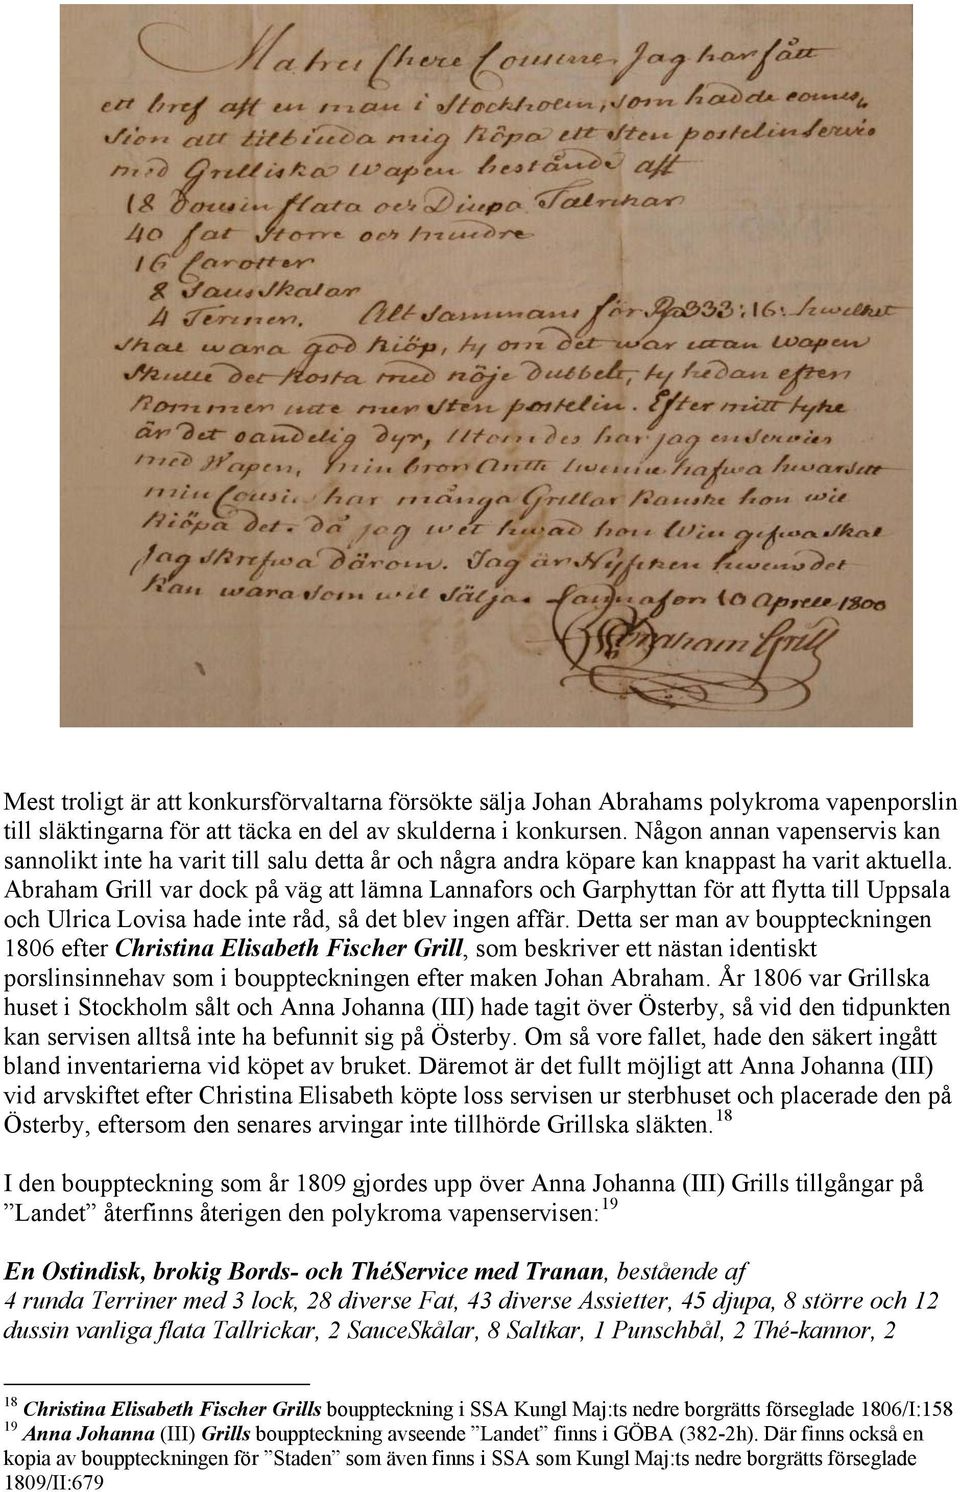 Ma tres Chere Cousinne, Jag har fått
ett bref aff en man i Stockholm, som hadde comes,,
sion att tilbiuda mig köpa ett Sten postelin Servis
med Grilliska Wapen bestånde aff
18 Dousin flata ock Diupa Talrikar
40 fat Storre ock mindre
16 Carotter
8 Saus Skalar
4 Terriner. Alt Sammans för 333:16: hwilket
skal wara god kiöp, ty om det war uttan Wapen
Skulle det kosta med nöje dubbelt, ty hedan efter
kommer inte mer Sten postelin. Efter mitt tyke
är det oändelig dyr, Utom des har jag en Servies
med Wapen, min bror Anth hafwa hwar sitt
min Cousin har många Grillar kanske hon wil
kiöpa det. då jag wet hwad hon Will gifwa skal
Jag skrifwa därom. Jag är Nyfiken hwems det
kan wara som wil Sälja. Lannafors 10 Aprill 1800
Abraham Grill
Mest troligt är att konkursförvaltarna försökte sälja Johan Abrahams polykroma vapenporslin
till släktingarna för att täcka en del av skulderna i konkursen. Någon annan vapenservis kan
sannolikt inte ha varit till salu detta år och några andra köpare kan knappast ha varit aktuella.
Abraham Grill var dock på väg att lämna Lannafors och Garphyttan för att flytta till Uppsala
och Ulrica Lovisa hade inte råd, så det blev ingen affär. Detta ser man av bouppteckningen
1806 efter Christina Elisabeth Fischer Grill, som beskriver ett nästan identiskt
porslinsinnehav som i bouppteckningen efter maken Johan Abraham. År 1806 var Grillska
huset i Stockholm sålt och Anna Johanna (III) hade tagit över Österby, så vid den tidpunkten
kan servisen alltså inte ha befunnit sig på Österby. Om så vore fallet, hade den säkert ingått
bland inventarierna vid köpet av bruket. Däremot är det fullt möjligt att Anna Johanna (III)
vid arvskiftet efter Christina Elisabeth köpte loss servisen ur sterbhuset och placerade den på
Österby, eftersom den senares arvingar inte tillhörde Grillska släkten. 18
I den bouppteckning som år 1809 gjordes upp över Anna Johanna (III) Grills tillgångar på
”Landet” återfinns återigen den polykroma vapenservisen: 19
En Ostindisk, brokig Bords- och ThéService med Tranan, bestående af
4 runda Terriner med 3 lock, 28 diverse Fat, 43 diverse Assietter, 45 djupa, 8 större och 12
dussin vanliga flata Tallrickar, 2 SauceSkålar, 8 Saltkar, 1 Punschbål, 2 Thé-kannor, 2
18 Christina Elisabeth Fischer Grills bouppteckning i SSA Kungl Maj:ts nedre borgrätts förseglade 1806/I:158
19 Anna Johanna (III) Grills bouppteckning avseende ”Landet” finns i GÖBA (382-2h). Där finns också en
kopia av bouppteckningen för ”Staden” som även finns i SSA som Kungl Maj:ts nedre borgrätts förseglade
1809/II:679